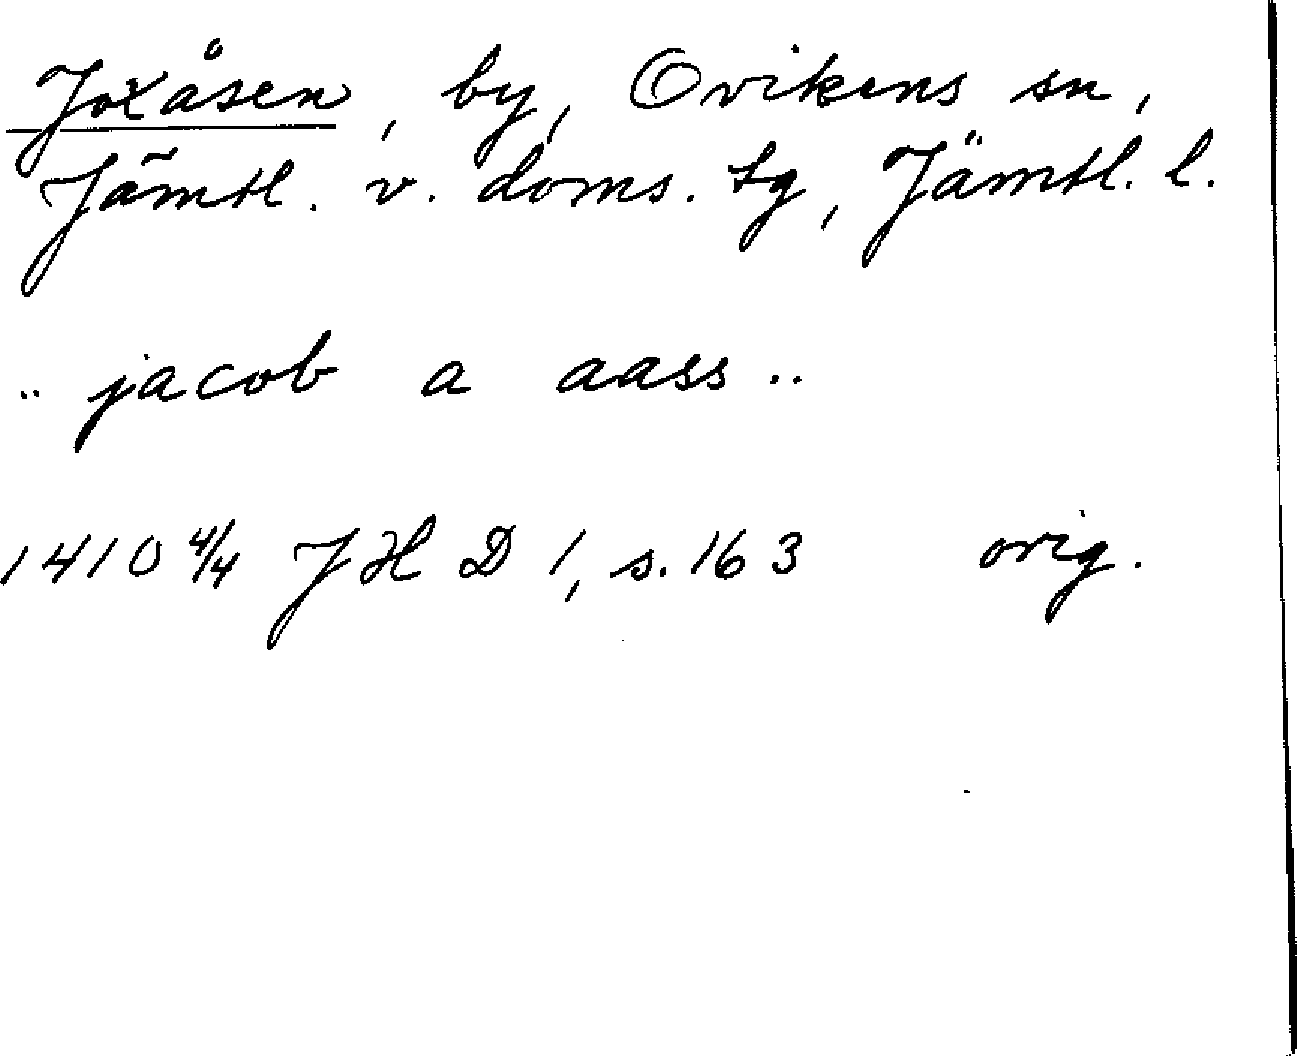 Joxåsen, by, Ovikens sn,
Jämtl. v. doms. tg, Jämtl. l.
.. jacob a aass ..
1410 4/4 JHD 1, s. 163 orig.